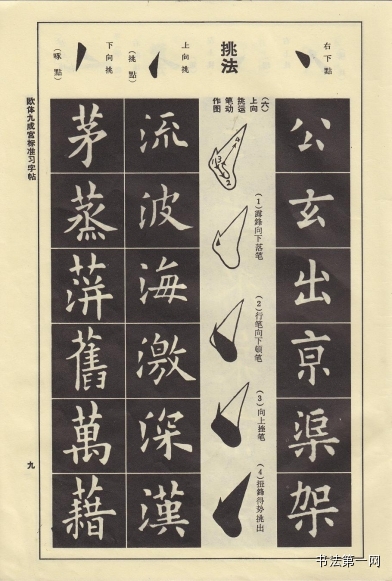 右下點
公玄出亰渠架
挑法
(六)
上向
挑运
笔动
作图
(1)露鋒向下落笔
(2)行笔向下頓笔
(3)向上挫笔
(4)鋒得势挑出
上向挑
(挑點)
流波海激深漢
下向挑
(啄點)
茅蒸蓱舊萬藉
欧体九成宫标准习字帖
九
书法第一网